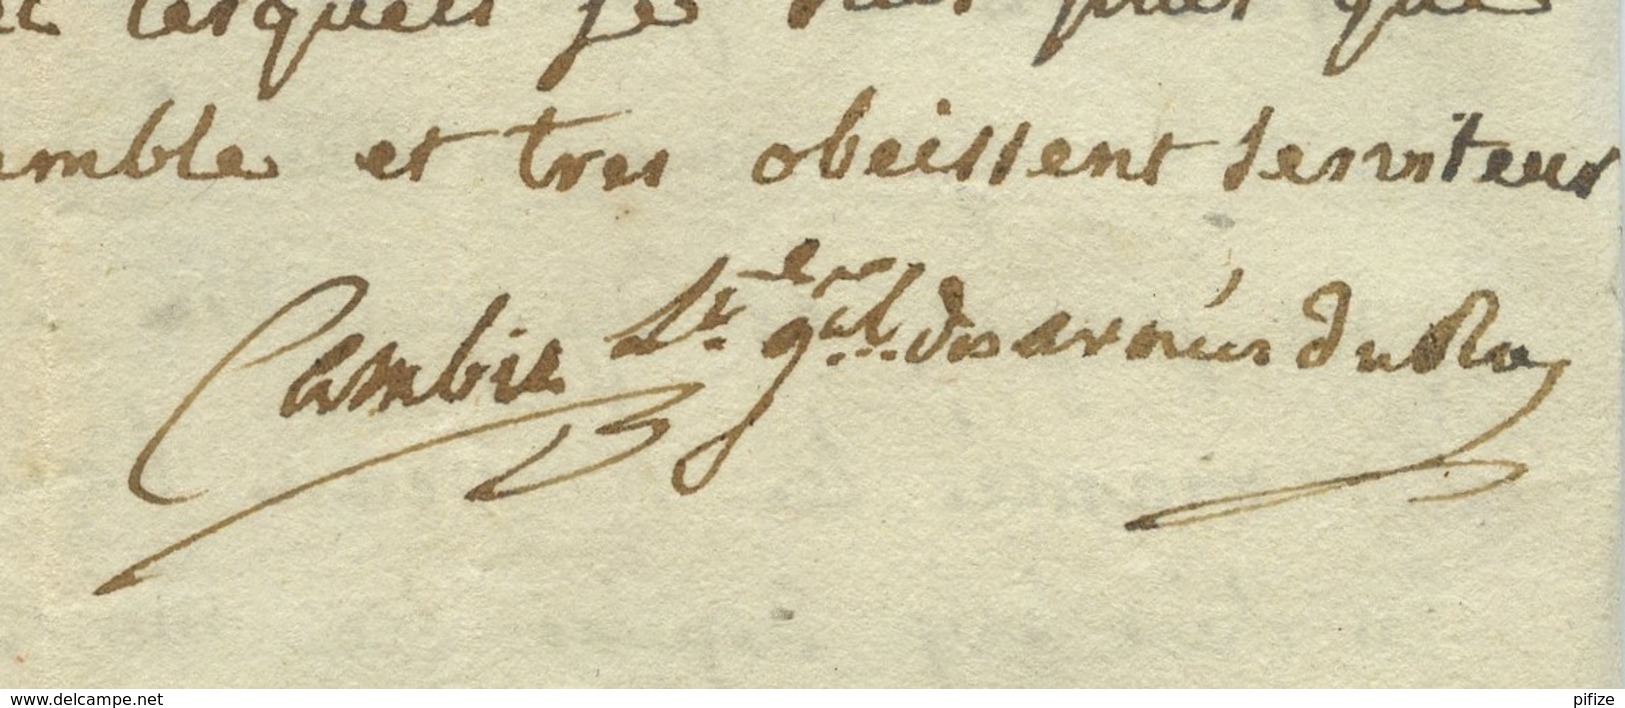 lesquels je suis plus que
umble et tres obeissent serviteur
Cambis Lt. gral. des armées du Roy
www.delcampe.net
pifize